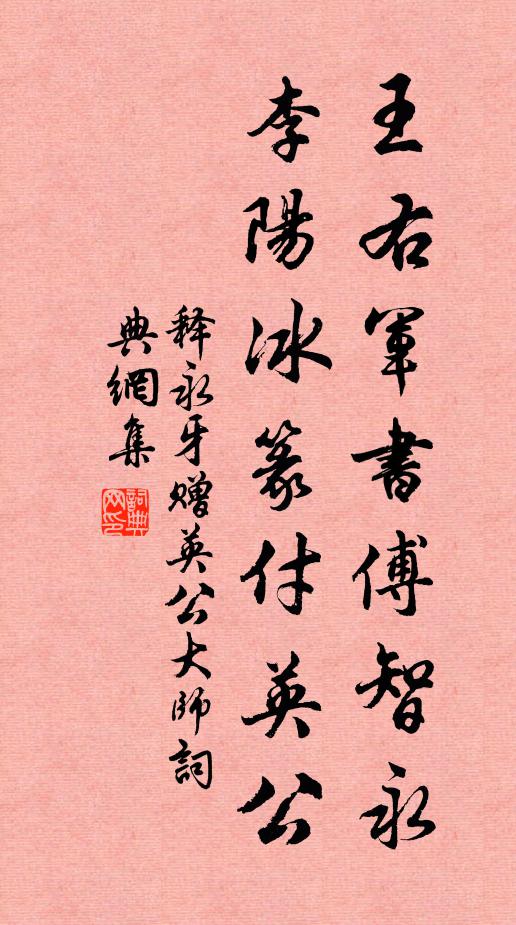 王右軍書傅智永
李陽冰篆付英公
释永牙赠英公大师詞
典網集
詞典網印